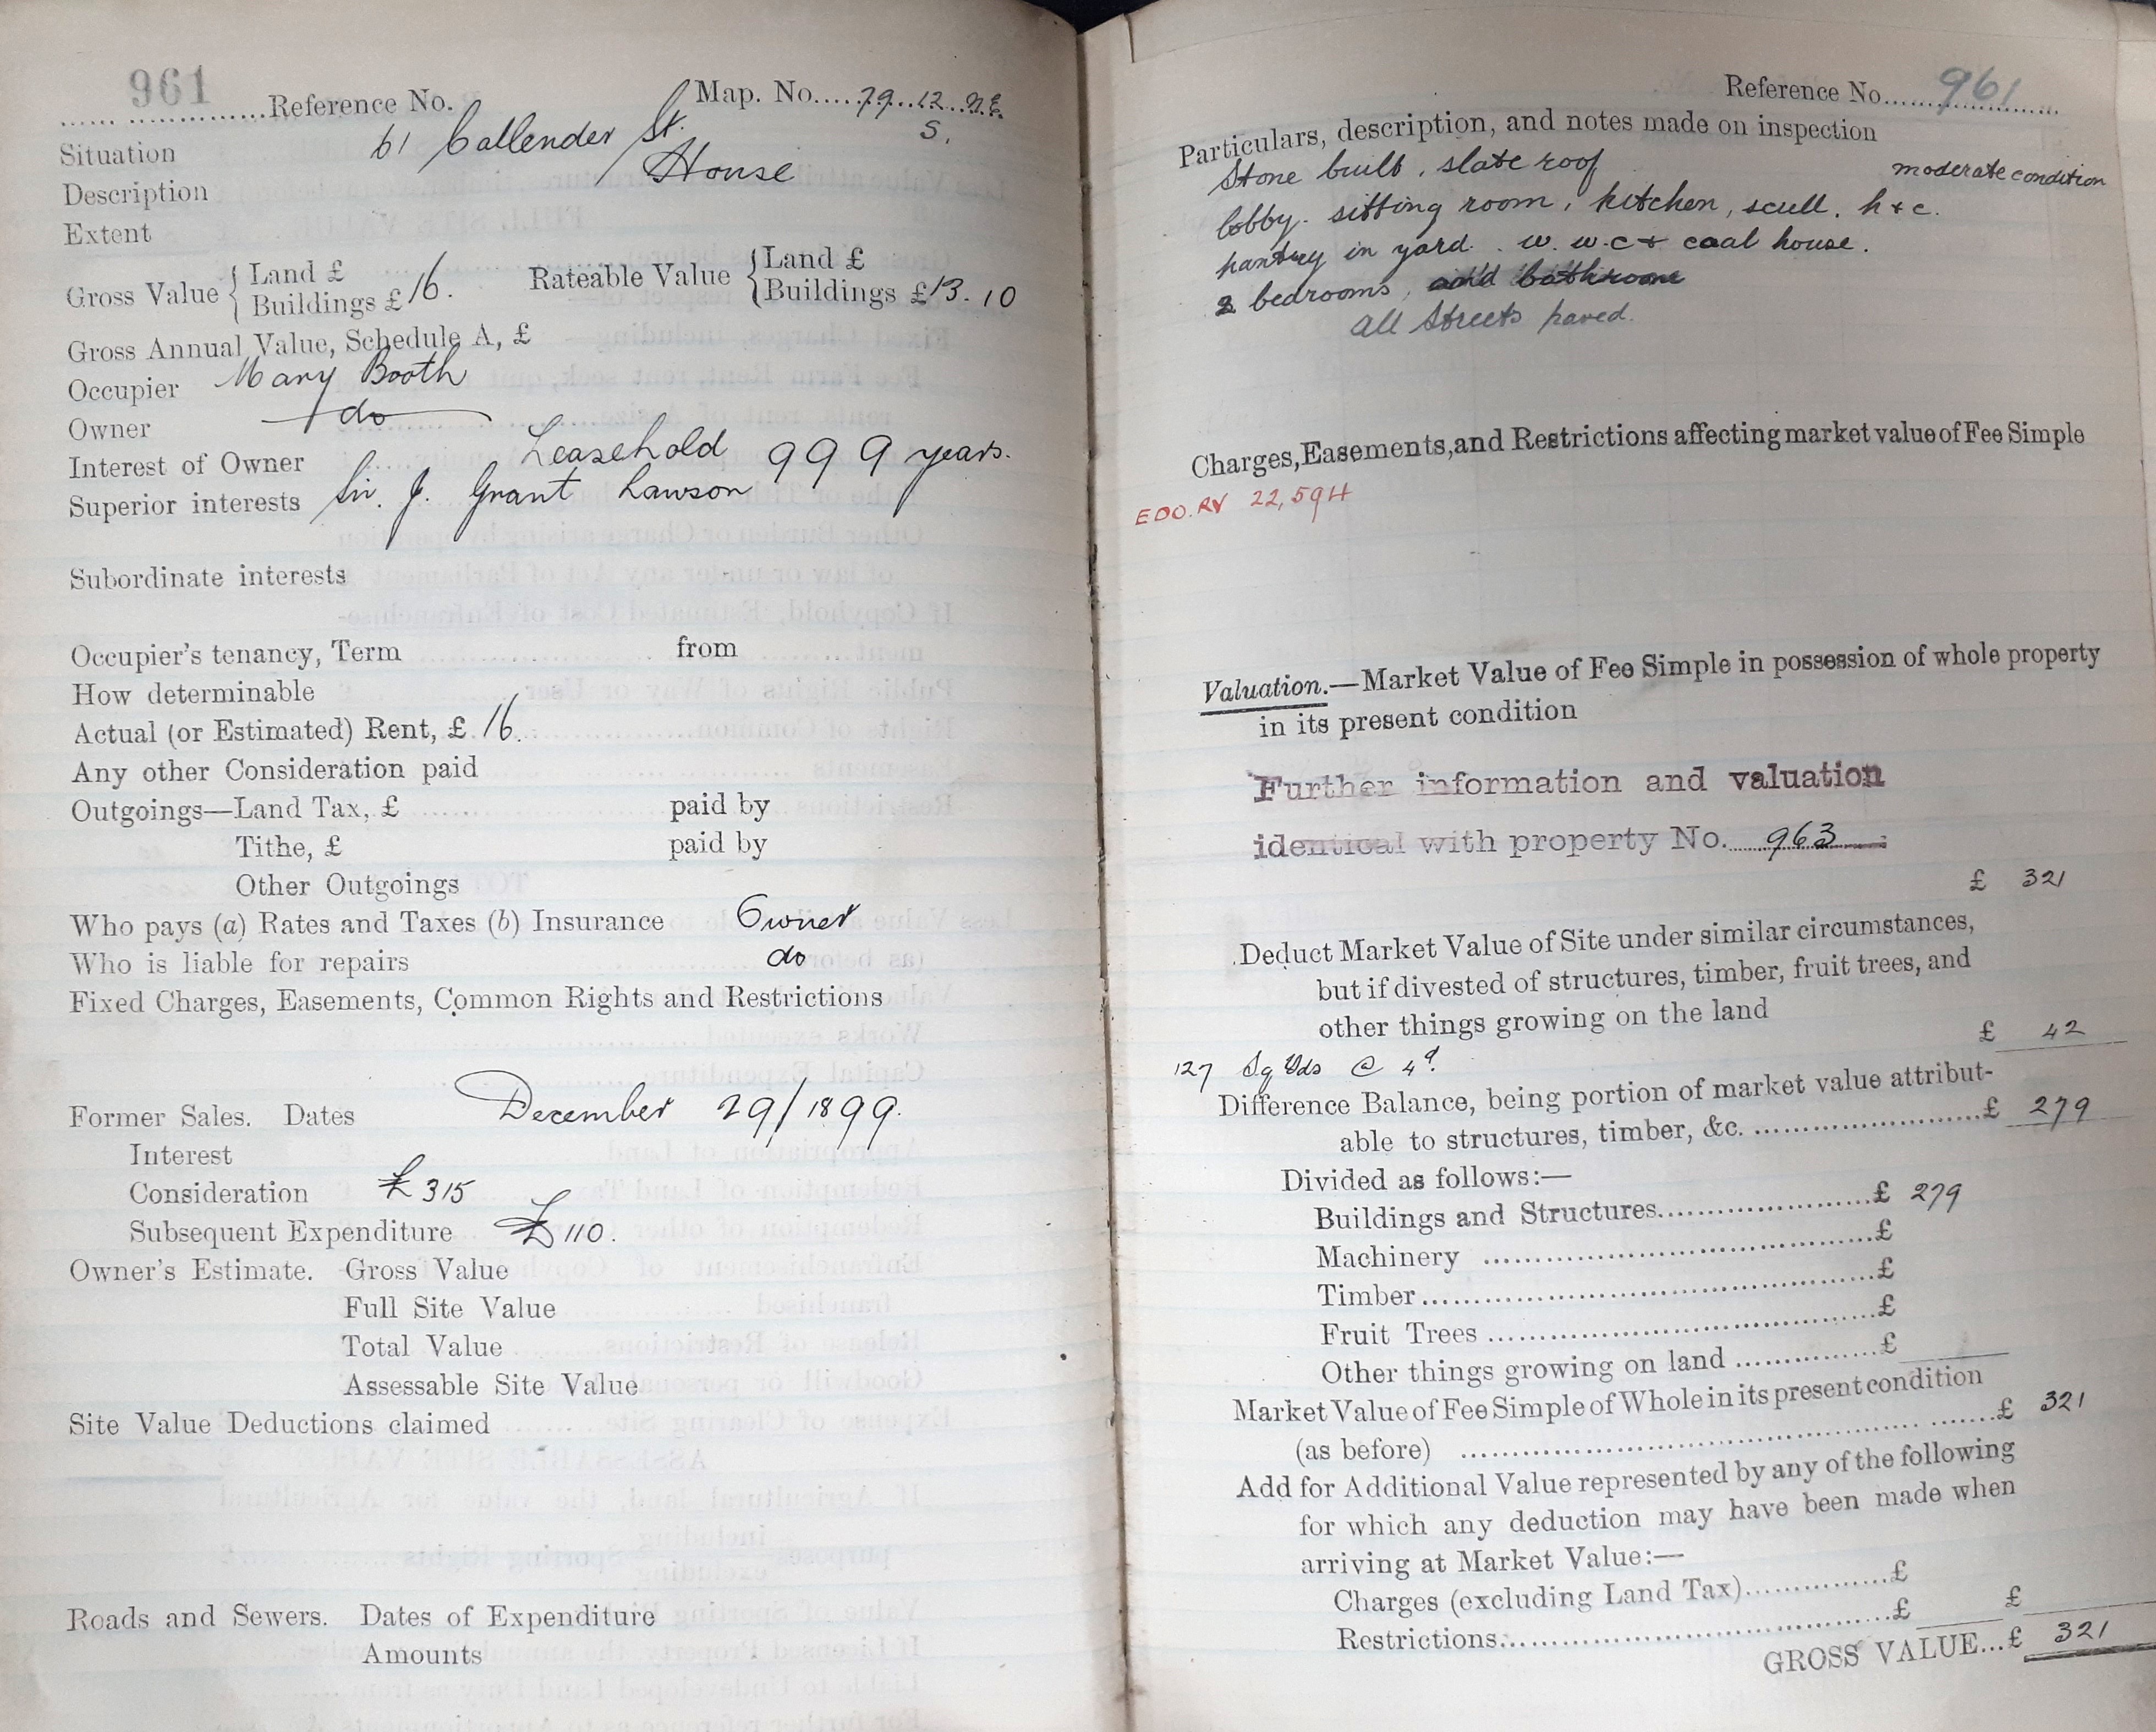 961
Reference No. Map. No. 79.12 N.E.
S.
Situation 61 Callender St.
Description House
Extent
Gross Value { Land £
Buildings £ 16.
Rateable Value { Land £
Buildings £ 13.10
Gross Annual Value, Schedule A, £
Occupier Mary Booth
Owner do
Interest of Owner Leasehold 999 years.
Superior interests Sir. J. Grant Lawson
Subordinate interests
Occupier's tenancy, Term from
How determinable
Actual (or Estimated) Rent, £ 16.
Any other Consideration paid
Outgoings—Land Tax, £ paid by
Tithe, £ paid by
Other Outgoings
Who pays (a) Rates and Taxes (b) Insurance Owner
Who is liable for repairs do
Fixed Charges, Easements, Common Rights and Restrictions
Former Sales. Dates December 29/1899.
Interest
Consideration £315
Subsequent Expenditure £110.
Owner's Estimate. Gross Value
Full Site Value
Total Value
Assessable Site Value
Site Value Deductions claimed
Roads and Sewers. Dates of Expenditure
Amounts
Reference No. 961
Particulars, description, and notes made on inspection
Stone built, slate roof moderate condition
lobby. sitting room, kitchen, scull. h+c.
pantry in yard. w.w.c + coal house.
2 bedrooms, and bathroom
all Streets paved.
Charges, Easements, and Restrictions affecting market value of Fee Simple
EDO.RV 22,594
Valuation.—Market Value of Fee Simple in possession of whole property
in its present condition
Further information and valuation
identical with property No. 963
£ 321
Deduct Market Value of Site under similar circumstances,
but if divested of structures, timber, fruit trees, and
other things growing on the land
£ 42
127 Sq Yds @ 4d.
Difference Balance, being portion of market value attribut-
able to structures, timber, &c. £ 279
Divided as follows:—
Buildings and Structures £ 279
Machinery £
Timber £
Fruit Trees £
Other things growing on land £
Market Value of Fee Simple of Whole in its present condition
(as before) £ 321
Add for Additional Value represented by any of the following
for which any deduction may have been made when
arriving at Market Value:—
Charges (excluding Land Tax) £
Restrictions £ £
GROSS VALUE...£ 321